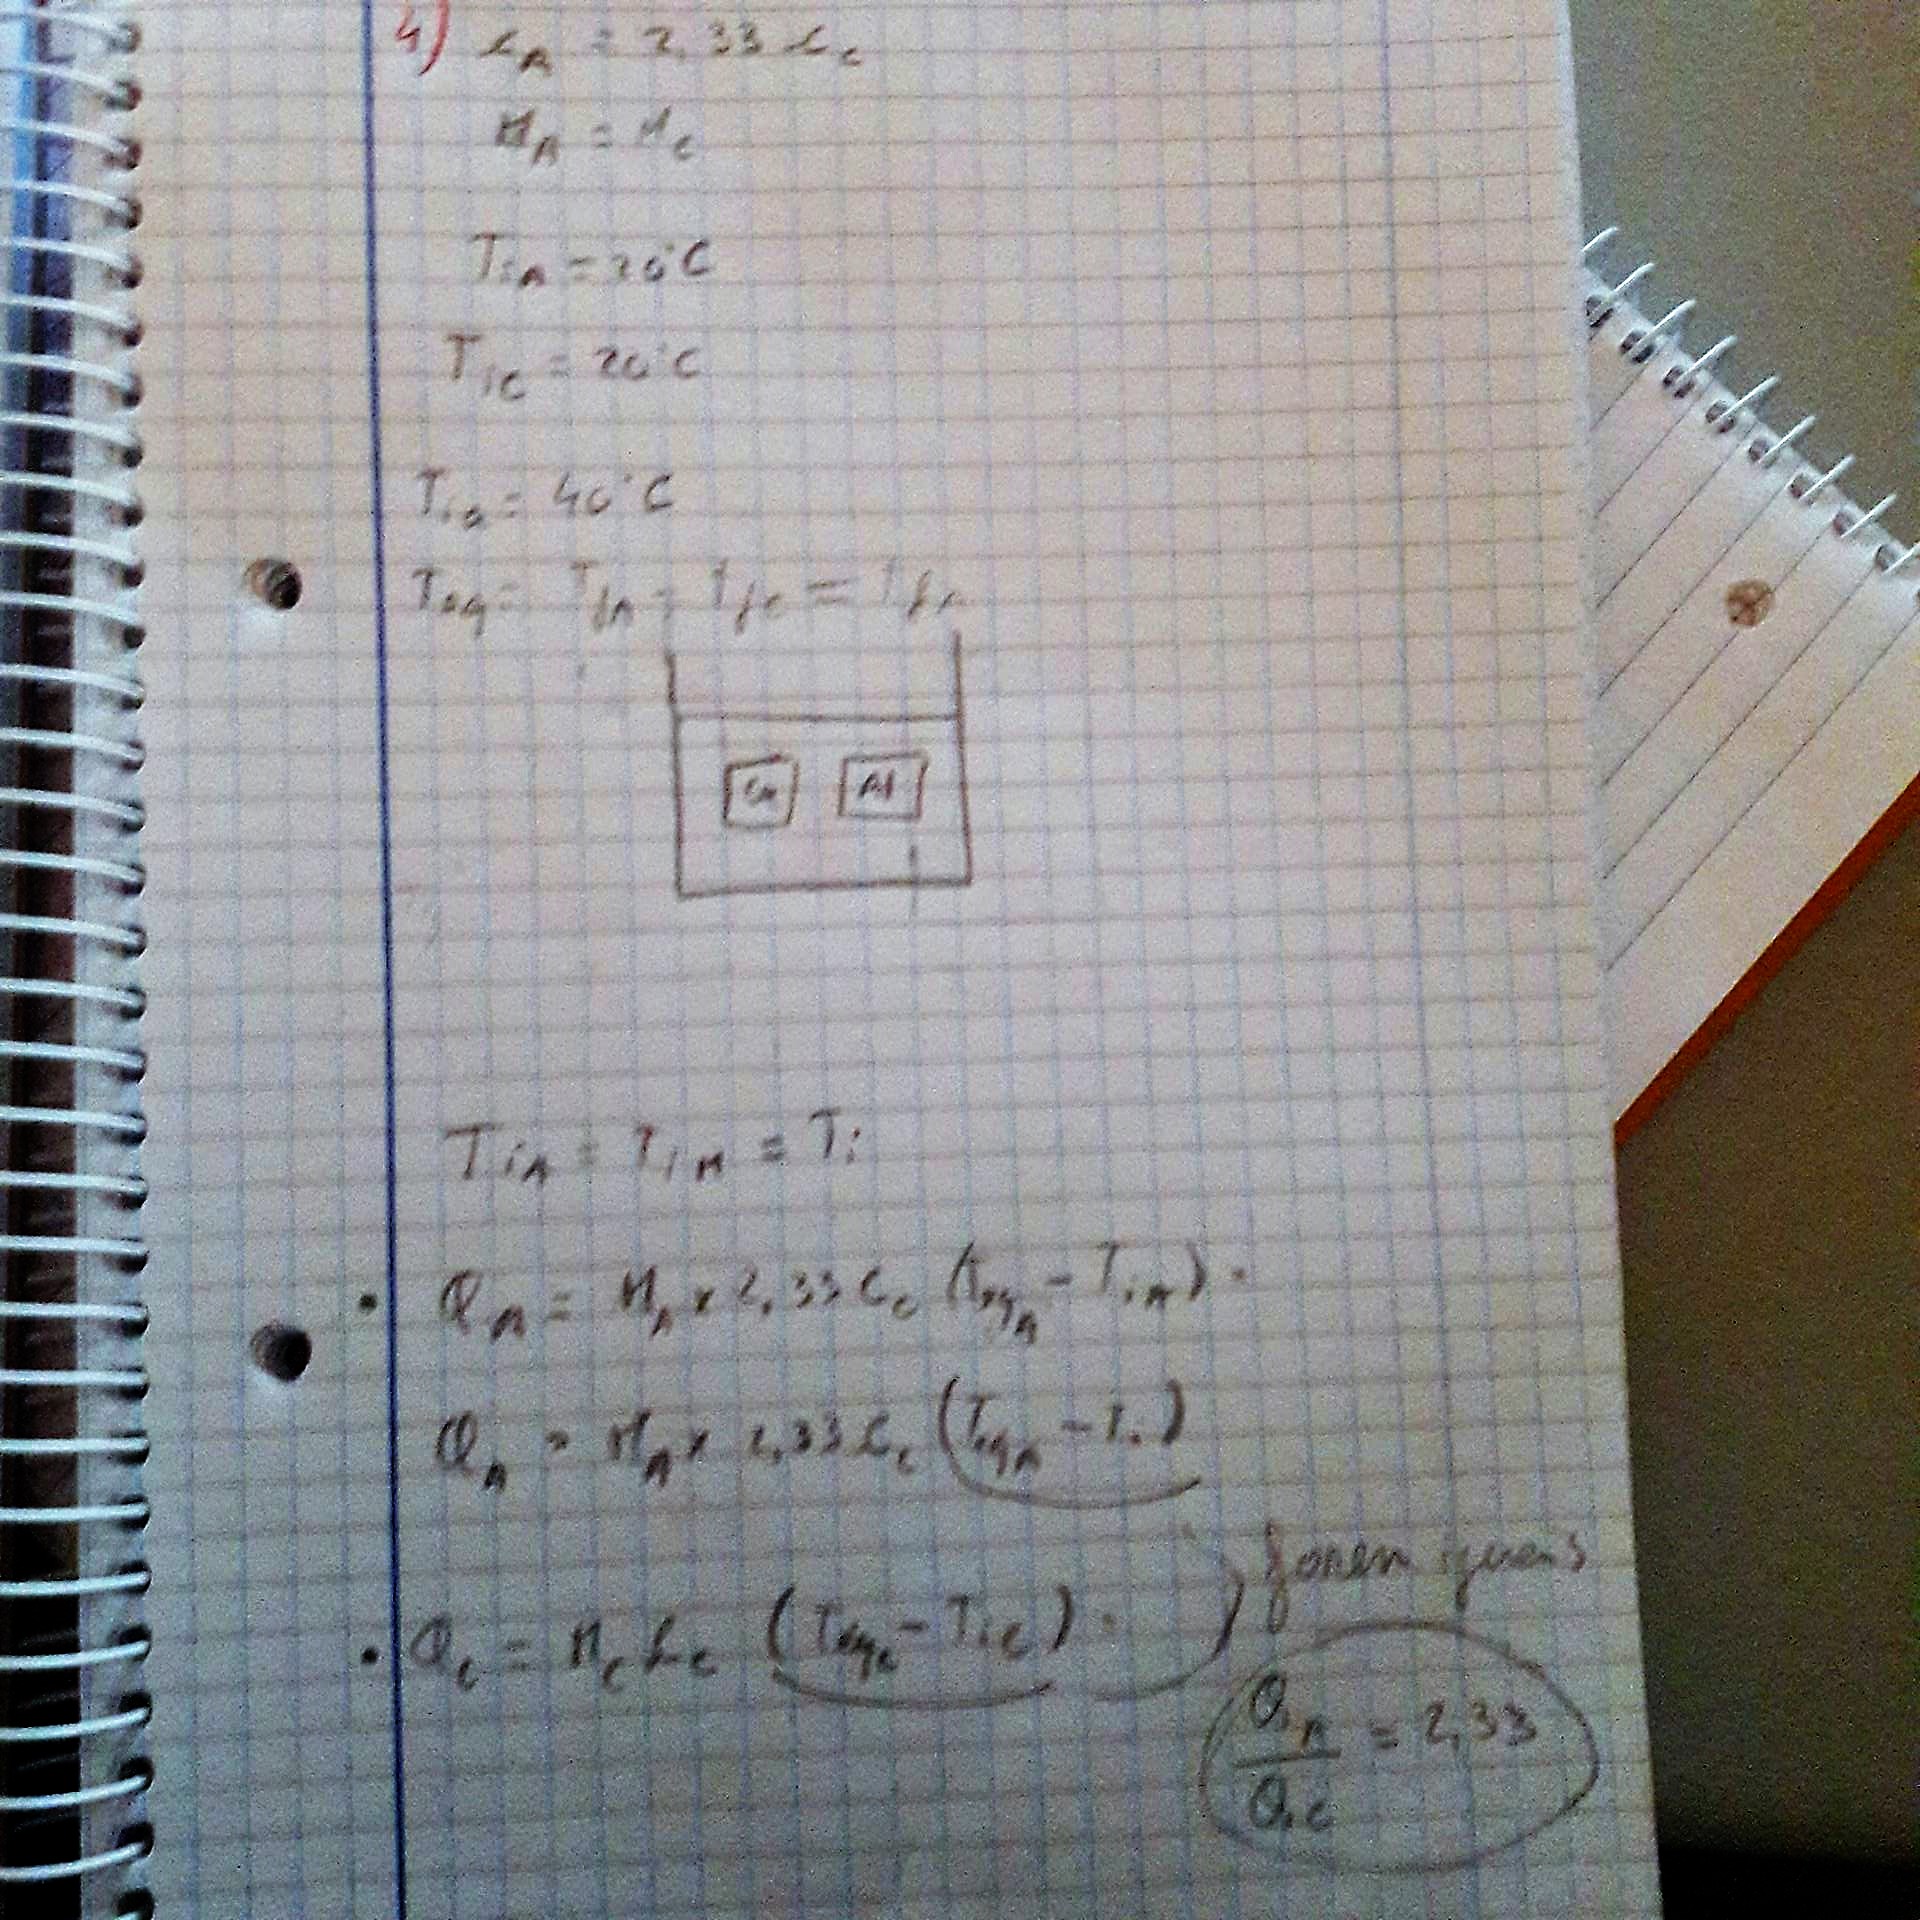 4) c_A = 2,33 c_c
M_A = M_c
T_iA = 20°C
T_ic = 20°C
T_ia = 40°C
T_eq = T_fA = T_fc = T_fa
Cu Al
T_iA = T_iM = T_i
• Q_A = M_A x 2,33 c_c (T_eqA - T_iA).
Q_A = M_A x 2,33 c_c (T_eqA - T_i)
• Q_c = M_c c_c (T_eqc - T_ic).
Q_A / Q_c = 2,33